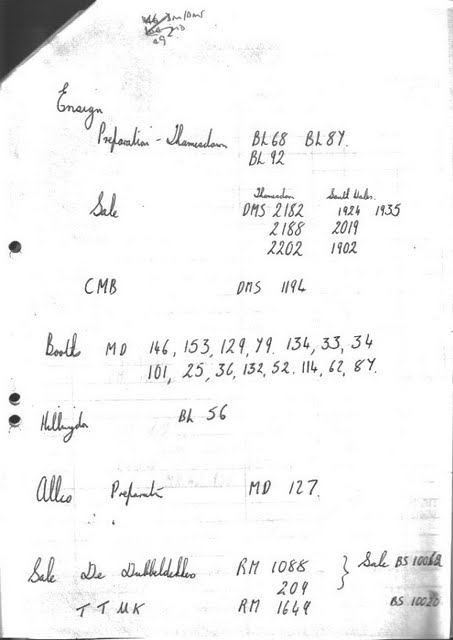 Ensign
Preparation - Thamesdown BL 68 BL 84.
BL 92
Thamesdown South Wales.
Sale DMS 2182 1924 1935
2188 2019
2202 1902
CMB DMS 1194
Booths MD 146, 153, 129, 49. 134, 33, 34
101, 25, 36, 132, 52. 114, 62, 84.
Hillingdon BL 56
Allco Preparati MD 127.
Sale De Dubbeldekker RM 1088 } Sale BS 10062
209
T T UK RM 1649 BS 10020